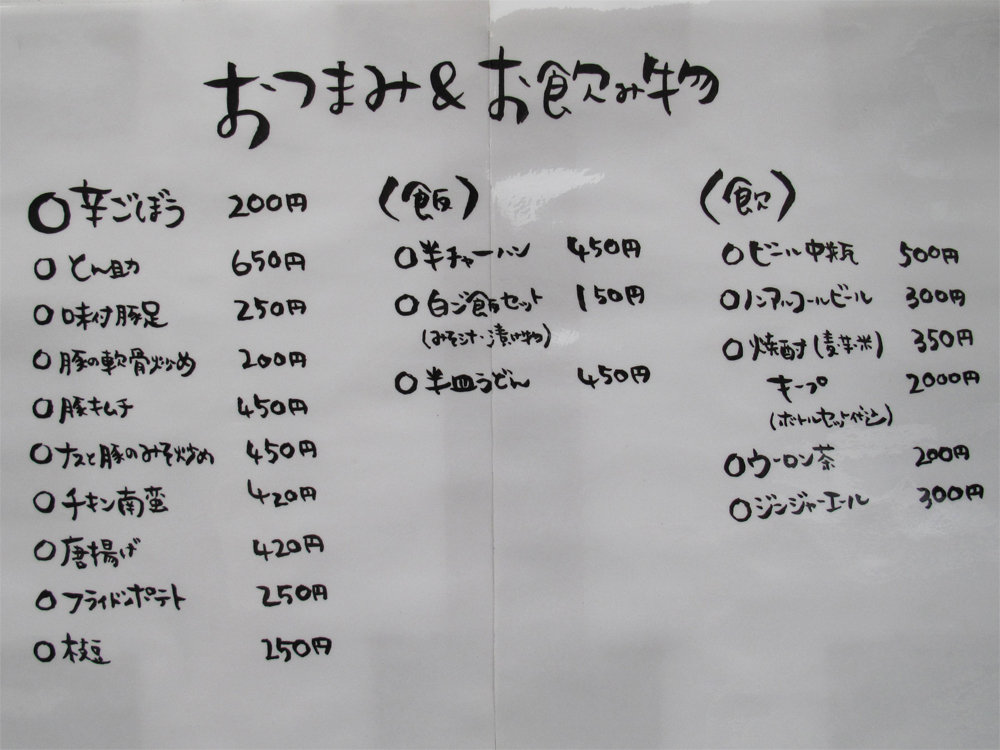 おつまみ&お飲み物
○辛ごぼう 200円
○とん助 650円
○味付豚足 250円
○豚の軟骨炒め 200円
○豚キムチ 450円
○ナスと豚のみそ炒め 450円
○チキン南蛮 420円
○唐揚げ 420円
○フライドポテト 250円
○枝豆 250円
(飯)
○半チャーハン 450円
○白ご飯セット 150円
(みそ汁・漬け物)
○半皿うどん 450円
(飲)
○ビール中瓶 500円
○ノンアルコールビール 300円
○焼酎(麦芋米) 350円
キープ 2000円
(ボトルセット代込)
○ウーロン茶 200円
○ジンジャーエール 300円